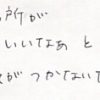 所が
いいなあと
がつかないで